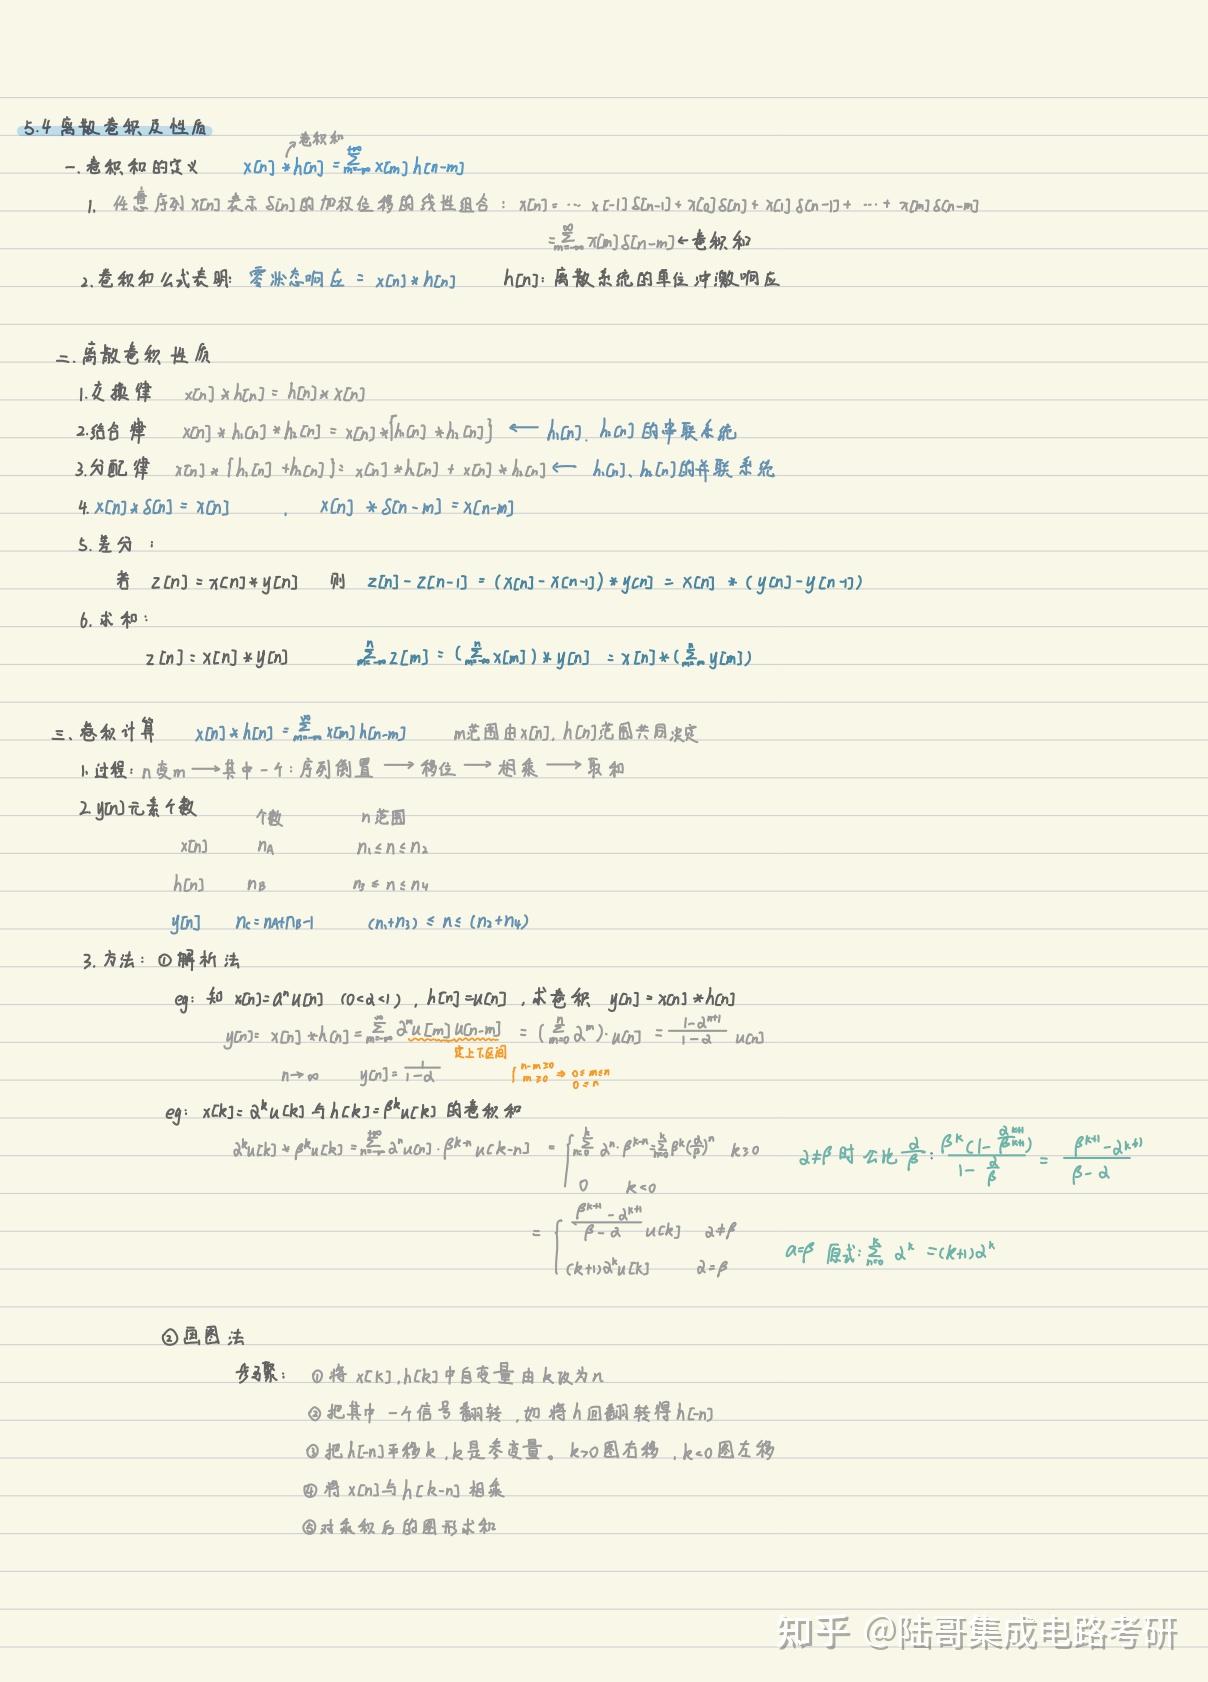 5.4 离散卷积及性质
卷积和
一. 卷积和的定义 x[n] * h[n] = ∑_{m=-∞}^{+∞} x[m] h[n-m]
1. 任意序列 x[n] 表示 δ[n] 的加权位移的线性组合: x[n] = ··· x[-1] δ[n-1] + x[0] δ[n] + x[1] δ[n-1] + ··· + x[m] δ[n-m]
= ∑_{m=-∞}^{∞} x[m] δ[n-m] ← 卷积和
2. 卷积和公式表明: 零状态响应 = x[n] * h[n] h[n]: 离散系统的单位冲激响应
二. 离散卷积性质
1. 交换律 x[n] * h[n] = h[n] * x[n]
2. 结合律 x[n] * h₁[n] * h₂[n] = x[n] * {h₁[n] * h₂[n]} ← h₁[n]. h₂[n] 的串联系统
3. 分配律 x[n] * {h₁[n] + h₂[n]} = x[n] * h₁[n] + x[n] * h₂[n] ← h₁[n]、h₂[n] 的并联系统
4. x[n] * δ[n] = x[n] , x[n] * δ[n-m] = x[n-m]
5. 差分:
若 z[n] = x[n] * y[n] 则 z[n] - z[n-1] = (x[n] - x[n-1]) * y[n] = x[n] * (y[n] - y[n-1])
6. 求和:
z[n] = x[n] * y[n] ∑_{m=-∞}^{n} z[m] = (∑_{m=-∞}^{n} x[m]) * y[n] = x[n] * (∑_{m=-∞}^{n} y[m])
三、卷积计算 x[n] * h[n] = ∑_{m=-∞}^{∞} x[m] h[n-m] m范围由 x[n], h[n] 范围共同决定
1. 过程: n变m → 其中一个: 序列倒置 → 移位 → 相乘 → 取和
2. y[n] 元素个数 个数 n范围
x[n] n_A n₁ ≤ n ≤ n₂
h[n] n_B n₃ ≤ n ≤ n₄
y[n] n_C = n_A + n_B - 1 (n₁+n₃) ≤ n ≤ (n₂+n₄)
3. 方法: ① 解析法
eg: 知 x[n] = aⁿ u[n] (0<α<1), h[n] = u[n], 求卷积 y[n] = x[n] * h[n]
y[n] = x[n] * h[n] = ∑_{m=-∞}^{∞} α^m u[m] u[n-m] = (∑_{m=0}^{n} α^m)·u[n] = (1-α^{n+1})/(1-α) u[n]
定上下区间
n→∞ y[n] = 1/(1-α) { n-m≥0 m≥0 ⇒ 0≤m≤n 0≤n
eg: x[k] = α^k u[k] 与 h[k] = β^k u[k] 的卷积和
α^k u[k] * β^k u[k] = ∑_{n=-∞}^{+∞} αⁿ u[n]·β^{k-n} u[k-n] = { ∑_{n=0}^{k} αⁿ·β^{k-n} = ∑_{n=0}^{k} β^k (α/β)ⁿ k≥0 α≠β 时 公比 α/β: β^k (1 - α^{k+1}/β^{k+1}) / (1 - α/β) = (β^{k+1} - α^{k+1})/(β-α)
0 k<0
= { (β^{k+1} - α^{k+1})/(β-α) u[k] α≠β
(k+1)α^k u[k] α=β a=β 原式: ∑_{n=0}^{k} α^k = (k+1)α^k
② 画图法
步骤: ① 将 x[k], h[k] 中自变量由 k 改为 n
② 把其中一个信号翻转, 如将 h[n] 翻转得 h[-n]
③ 把 h[-n] 平移 k, k 是参变量。k>0 图右移, k<0 图左移
④ 将 x[n] 与 h[k-n] 相乘
⑤ 对乘积后的图形求和
知乎 @陆哥集成电路考研